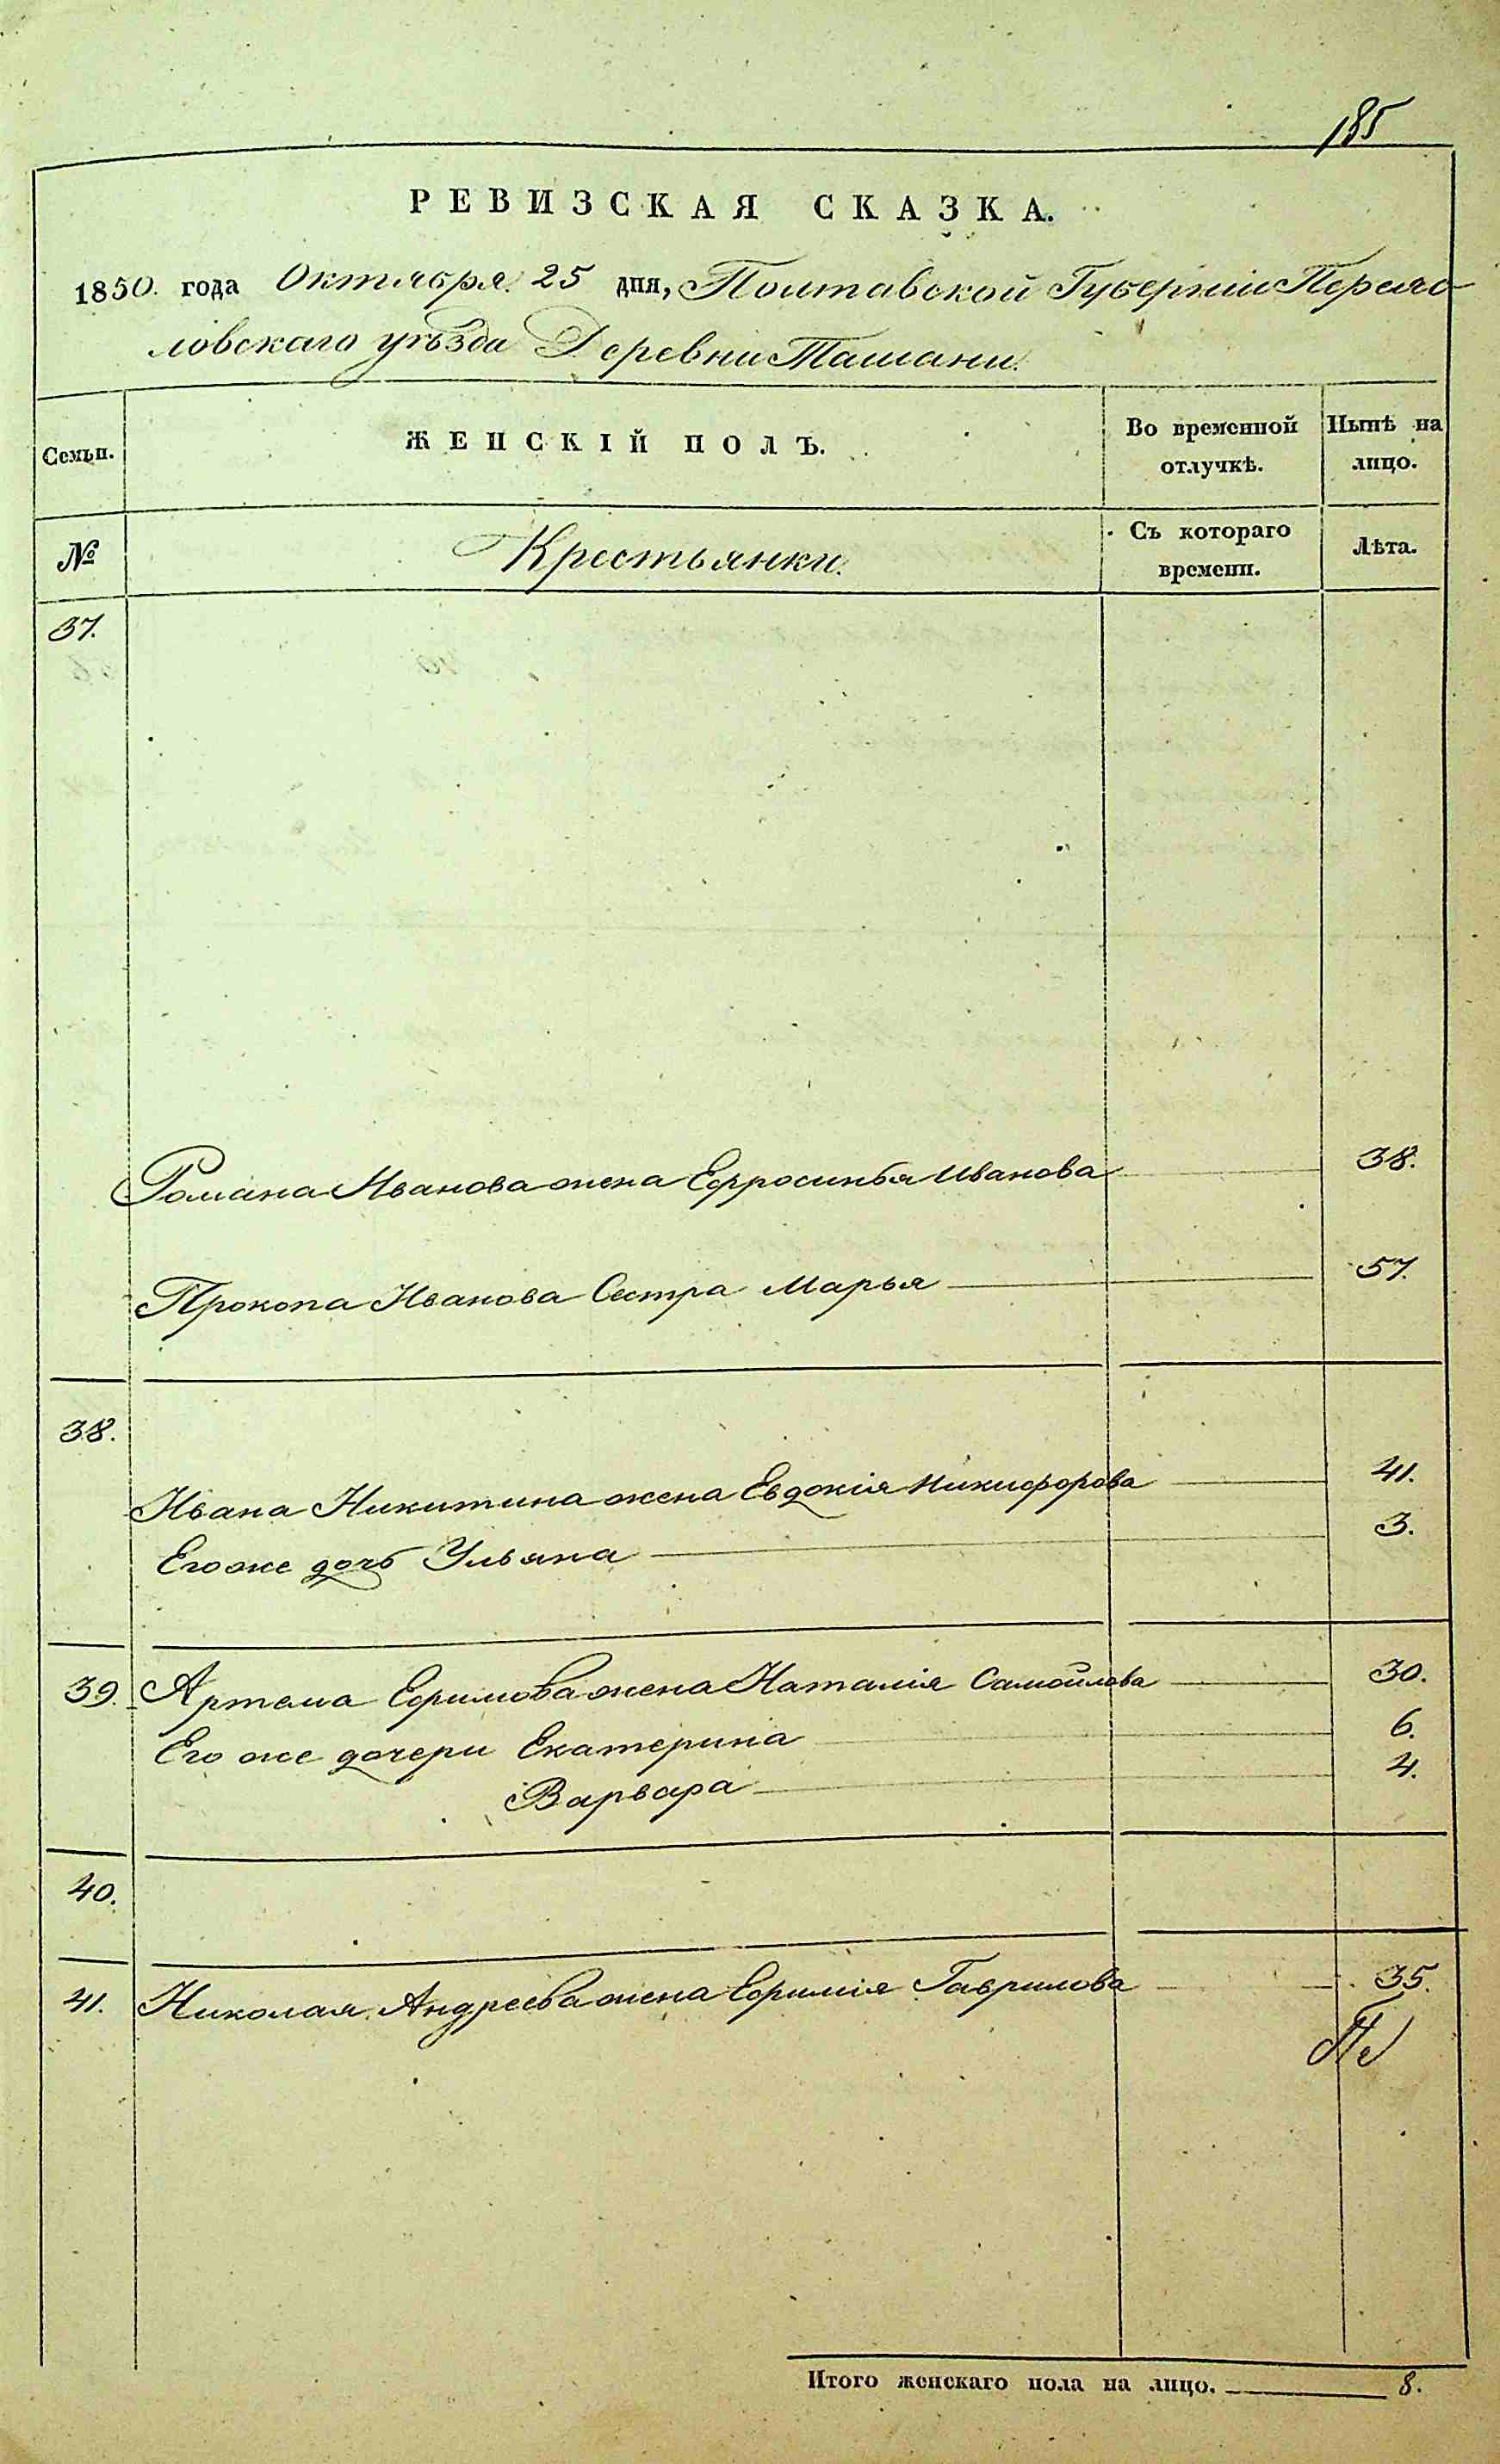 185
РЕВИЗСКАЯ СКАЗКА.
1850. года Октября 25 дня, Полтавской Губерніи Переяс-
ловскаго уѣзда Деревни Ташани.
Семьи. ЖЕНСКІЙ ПОЛЪ. Во временной отлучкѣ. Нынѣ на лицо.
№ Крестьянки. Съ котораго времени. Лѣта.
37.
Романа Иванова жена Ефросинья Иванова 38.
Прокопа Иванова Сестра Марья 57.
38.
Ивана Никитина жена Евдокія Никифорова 41.
Его же дочь Ульяна 3.
39. Артема Ефимова жена Наталія Самойлова 30.
Его же дочери Екатерина 6.
Варвара 4.
40.
41. Николая Андреева жена Ефимія Гаврилова 35.
Итого женскаго пола на лицо. 8.